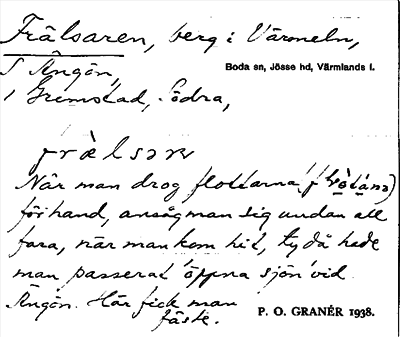 Frälsaren, berg i Värmeln,
S Ängön,
Boda sn, Jösse hd, Värmlands l.
i Gremstad, Södra,
frälsarn
När man drog flottarna
för hand, ansåg man sig undan all
fara, när man kom hit, ty då hade
man passerat öppna sjön vid
Ängön. Här fick man
fäste.
P. O. GRANÉR 1938.